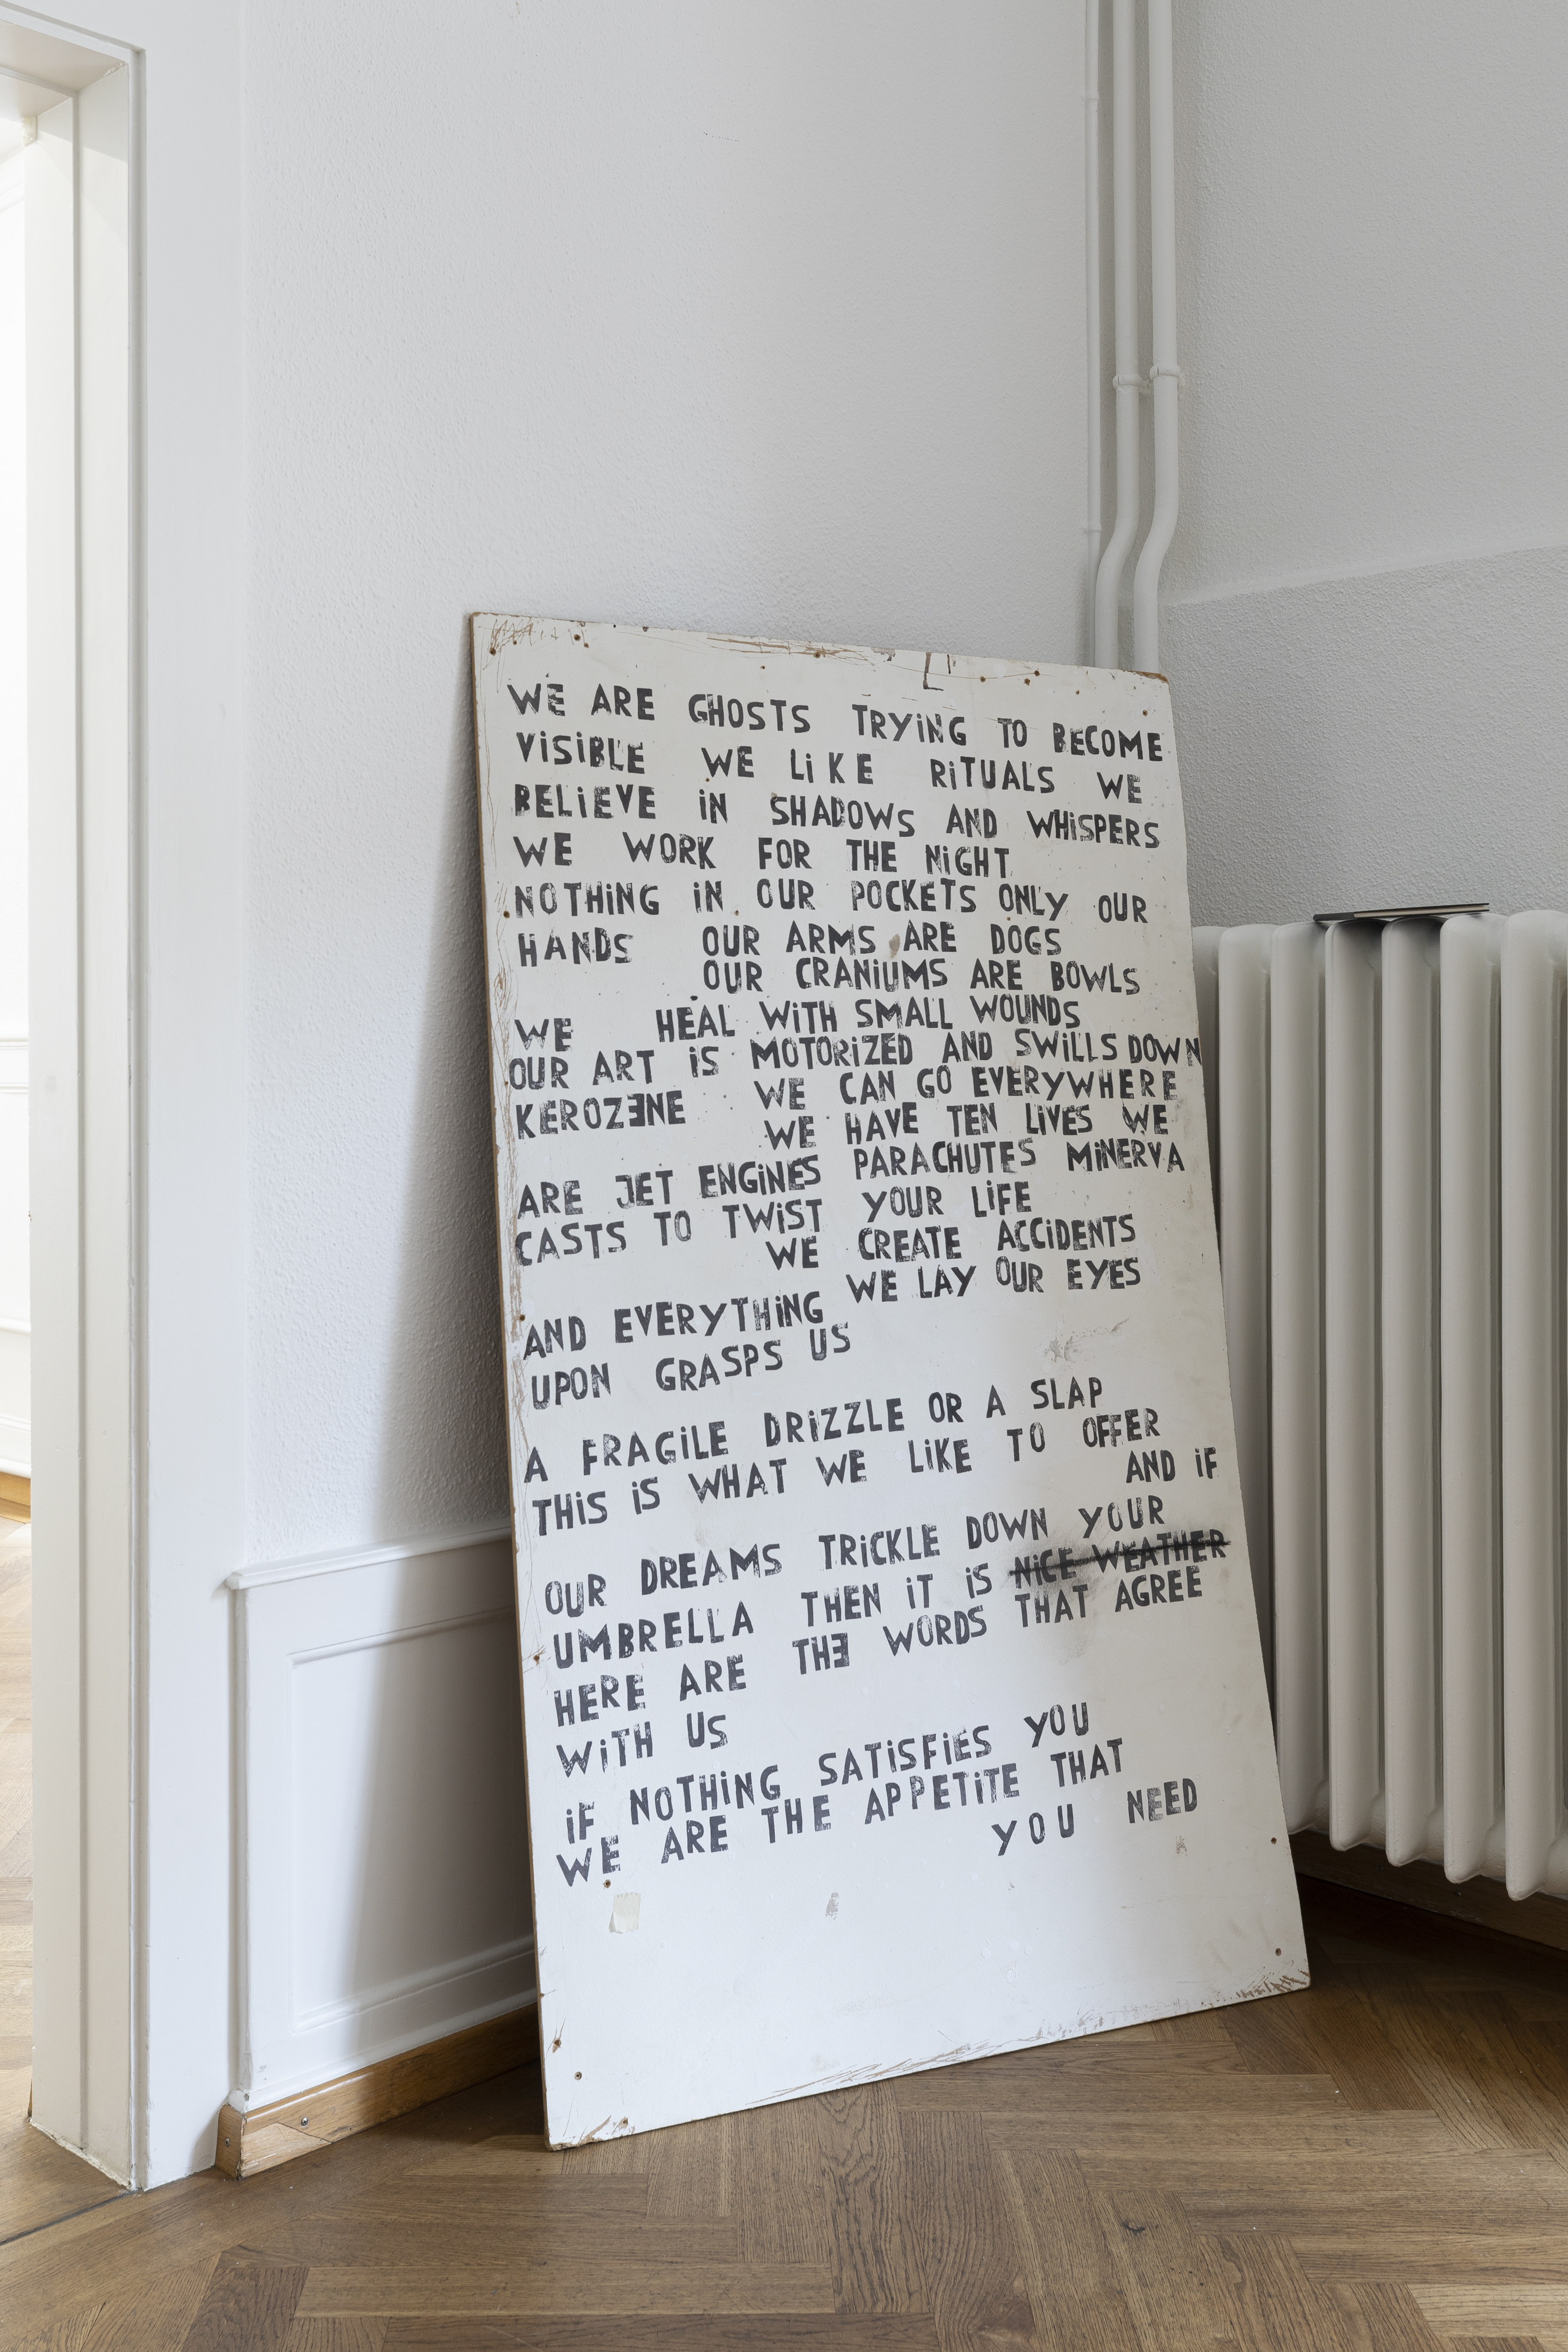 WE ARE GHOSTS TRYING TO BECOME
VISIBLE WE LIKE RITUALS WE
BELIEVE IN SHADOWS AND WHISPERS
WE WORK FOR THE NIGHT
NOTHING IN OUR POCKETS ONLY OUR
HANDS OUR ARMS ARE DOGS
OUR CRANIUMS ARE BOWLS
WE HEAL WITH SMALL WOUNDS
OUR ART IS MOTORIZED AND SWILLS DOWN
KEROZENE WE CAN GO EVERYWHERE
WE HAVE TEN LIVES WE
ARE JET ENGINES PARACHUTES MINERVA
CASTS TO TWIST YOUR LIFE
WE CREATE ACCIDENTS
AND EVERYTHING WE LAY OUR EYES
UPON GRASPS US
A FRAGILE DRIZZLE OR A SLAP
THIS IS WHAT WE LIKE TO OFFER
AND IF
OUR DREAMS TRICKLE DOWN YOUR
UMBRELLA THEN IT IS NICE WEATHER
HERE ARE THE WORDS THAT AGREE
WITH US
IF NOTHING SATISFIES YOU
WE ARE THE APPETITE THAT
YOU NEED